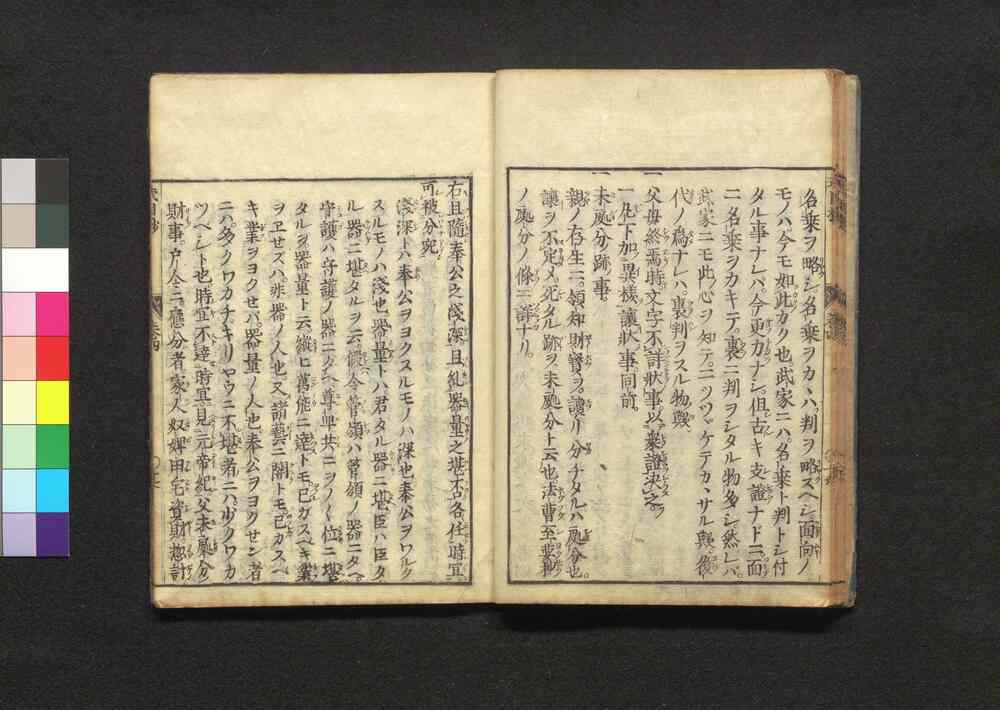 名乗ヲ略シ名乗ヲカヽハ判ヲ略スヘシ面向ノ
モノハ今モ如此カク也武家ニハ名乗ト判トシ付
タル事ナレハ今更カナシ但古キ支證ナドニ面
ニ名乗ヲカキテ裏ニ判ヲシタル物多シ然レハ
武家ニモ此心ヲ知テニツヾケテカヽサル歟後
代ノ為ナレハ裏判ヲスル物歟
一父母終焉時文字不詳状事以衆證決之
一凡下加異様譲状事同前
一未処分跡事
親ノ存生ニ領知財寶ヲ譲リ分チタルハ処分也
譲ヲ不定〆死タル跡ヲ未処分ト云也法曹至要抄
ノ処分ノ條ニ詳ナリ
右且随奉公之浅深且糺器量之堪否各任時宜
可被分宛
浅深トハ奉公ヲヨクスルモノハ深也奉公ヲワルク
スルモノハ浅也器量トハ君タル器ニ堪臣ハ臣タ
ル器ニ堪タルヲ云假令管領ハ管領ノ器ニタヘ
守護ハ守護ノ器ニタヘ尊卑共ニヲノヽ位ニ堪
タルヲ器量ト云縦ヒ萬能ニ達トモ己ガスベキ業
ヲヱセズハ非器ノ人也又諸藝ニ闇トモ己カスベ
キ業ヲヨクセバ器量ノ人也奉公ヲヨクセン者
ニハ多クワカチキリヤウニ不堪者ニハ少クワカ
ツヘシト也時宜不違時宜見元帝紀父未處分
財事戸令ニ應分者家人奴婢田宅資財惣計
巻四